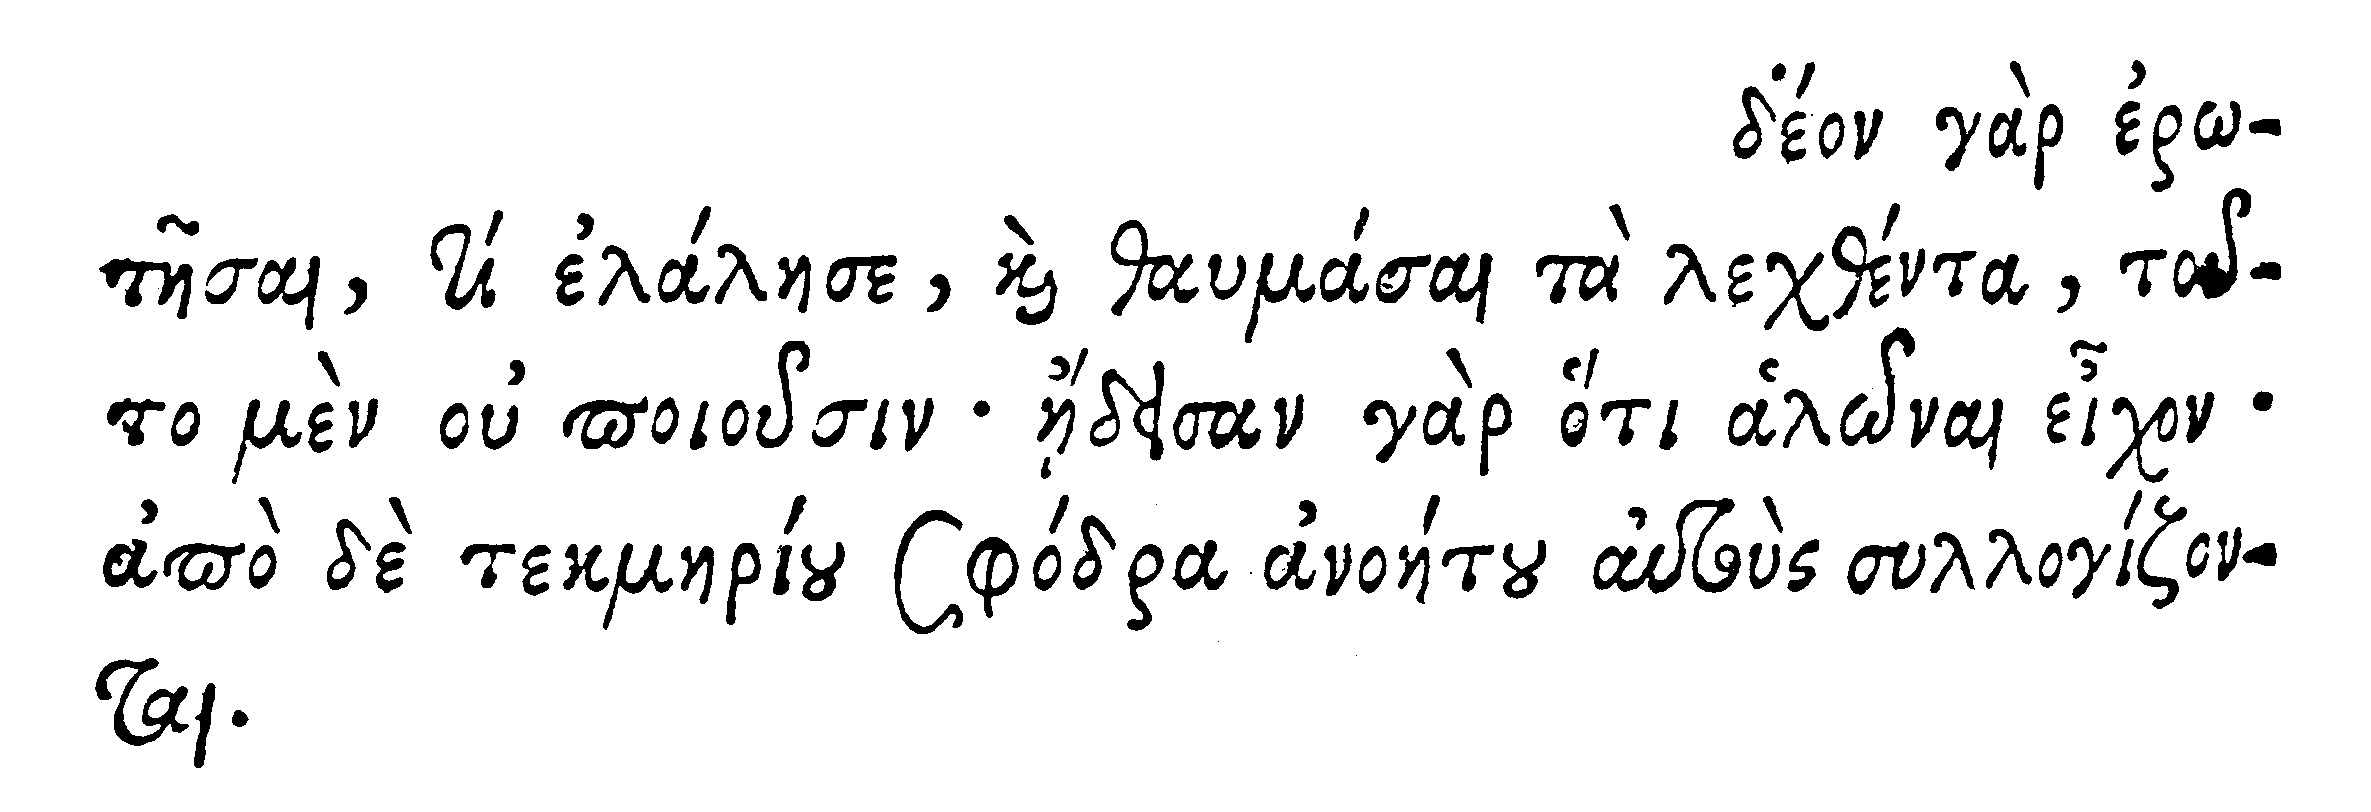 δέον γὰρ ἐρω-
τῆσαι, τί ἐλάλησε, καὶ θαυμάσαι τὰ λεχθέντα, τοῦ-
το μὲν οὐ ποιοῦσιν· ᾔδεισαν γὰρ ὅτι ἁλῶναι εἶχον·
ἀπὸ δὲ τεκμηρίου σφόδρα ἀνοήτου αὐτοὺς συλλογίζον-
ται.